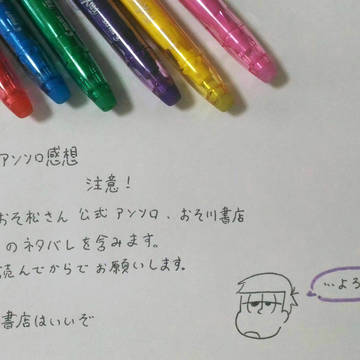 アンソロ感想
注意!
おそ松さん 公式アンソロ、おそ川書店
のネタバレを含みます。
読んでからでお願いします。
書店はいいぞ
…よろ